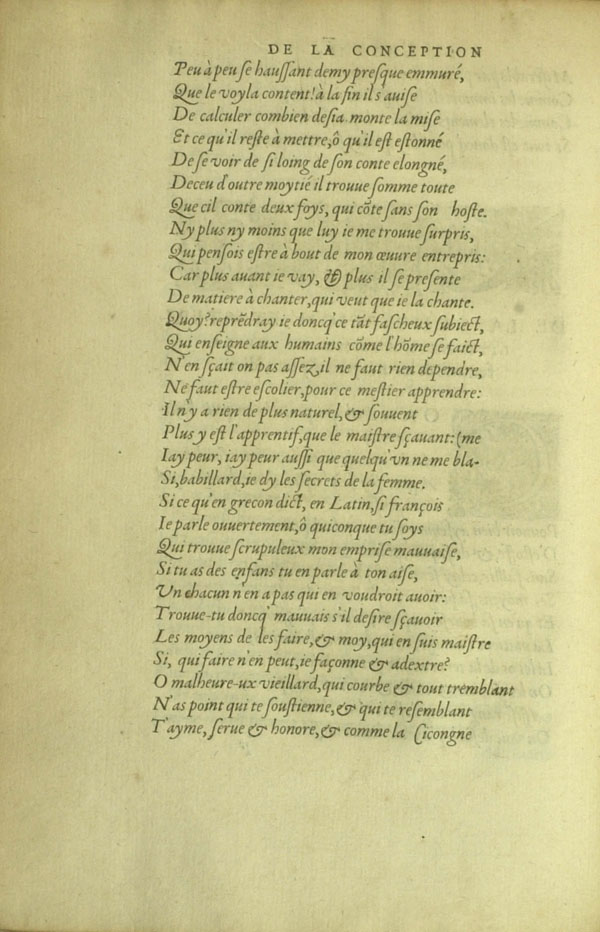 DE LA CONCEPTION
Peu à peu ſe hauſſant demy preſque emmuré,
Que le voyla content! à la fin il s'auiſe
De calculer combien deſia monte la miſe
Et ce qu'il reſte à mettre, ô qu'il eſt eſtonné
De ſe voir de ſi loing de ſon conte elongné,
Deceu d'outre moytié il trouue ſomme toute
Que cil conte deux foys, qui cõte ſans ſon hoſte.
Ny plus ny moins que luy ie me trouue ſurpris,
Qui penſois eſtre à bout de mon œuure entrepris:
Car plus auant ie vay, & plus il ſe preſente
De matiere à chanter, qui veut que ie la chante.
Quoy? reprẽdray ie doncq' ce tãt faſcheux ſubiect,
Qui enſeigne aux humains cõme l'hõme ſe faict,
N'en ſçait on pas aſſez, il ne faut rien dependre,
Ne faut eſtre eſcolier, pour ce meſtier apprendre:
Il n'y a rien de plus naturel, & ſouuent
Plus y eſt l'apprentif, que le maiſtre ſçauant: (me
I'ay peur, i'ay peur auſſi que quelqu'vn ne me bla-
Si, babillard, ie dy les ſecrets de la femme.
Si ce qu'en grec on dict, en Latin, ſi françois
Ie parle ouuertement, ô quiconque tu ſoys
Qui trouue ſcrupuleux mon empriſe mauuaiſe,
Si tu as des enfans tu en parle à ton aiſe,
Vn chacun n'en a pas qui en voudroit auoir:
Trouue-tu doncq' mauuais s'il deſire ſçauoir
Les moyens de les faire, & moy, qui en ſuis maiſtre
Si, qui faire n'en peut, ie façonne & adextre?
O malheure-ux vieillard, qui courbe & tout tremblant
N'as point qui te ſouſtienne, & qui te reſemblant
T'ayme, ſerue & honore, & comme la Cicongne